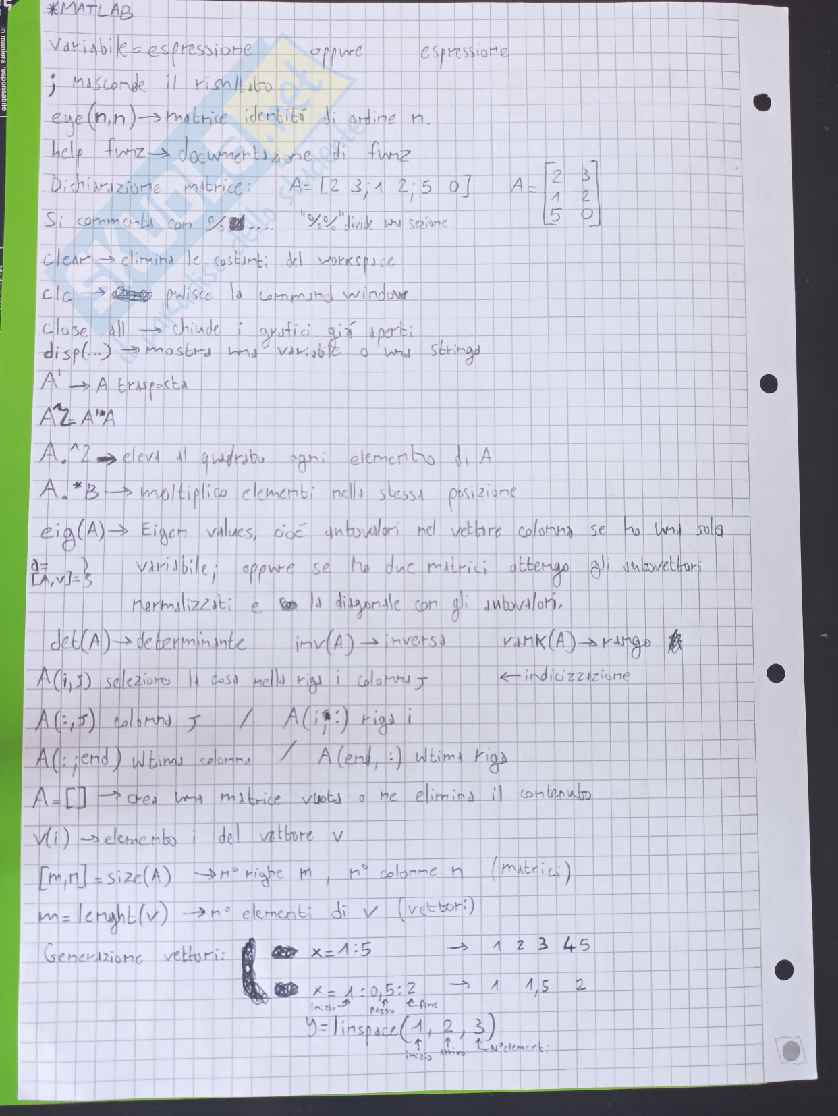 *MATLAB
Variabile=espressione oppure espressione
; nasconde il risultato
eye(n,n)→matrice identità di ordine n.
help funz→documentazione di funz
Dichiarazione matrice: A=[2 3;1 2;5 0] A=[2 3
1 2
5 0]
Si commenta con %.... "%%"divide una sezione
clear→elimina le costanti del workspace
clc → pulisce la command window
close all → chiude i grafici già aperti
disp(...) →mostra una variabile o una stringa
A' → A trasposta
A^2=A*A
A.^2→eleva al quadrato ogni elemento di A
A.*B→moltiplico elementi nella stessa posizione
eig(A)→ Eigen values, cioè autovalori nel vettore colonna se ho una sola
a=
[A,v]=} variabile; oppure se ho due matrici ottengo gli autovettori
normalizzati e la diagonale con gli autovalori.
det(A)→determinante inv(A)→inversa rank(A)→rango
A(i,j) seleziono la cosa nella riga i colonna j ←indicizzazione
A(:,j) colonna j / A(i,:) riga i
A(:,end) ultima colonna / A(end,:) ultima riga
A=[] →crea una matrice vuota o ne elimina il contenuto
v(i) →elemento i del vettore v
[m,n]=size(A) →n° righe m, n° colonne n (matrici)
m=lenght(v) →n° elementi di v (vettori)
Generazione vettori: x=1:5 → 1 2 3 4 5
x=1:0,5:2 → 1 1,5 2
inizio passo fine
y=linspace(1,2,3)
inizio fine N°elementi
SKUOLA.net
il paradiso dello studente